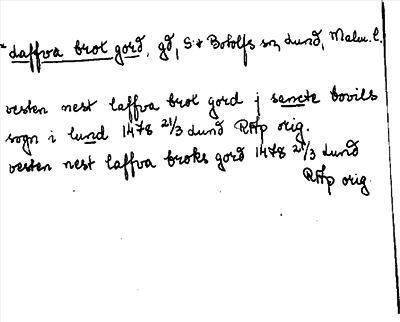 * Laffva brot gord, gd, S:t Botolfs sn, Lund, Malm. l.
vesten nest laffva brot gord j sancte bovils
sogn i lund 1478 21/3 Lund RAp orig.
vesten nest laffva broks gord 1478 21/3 Lund
RAp orig.